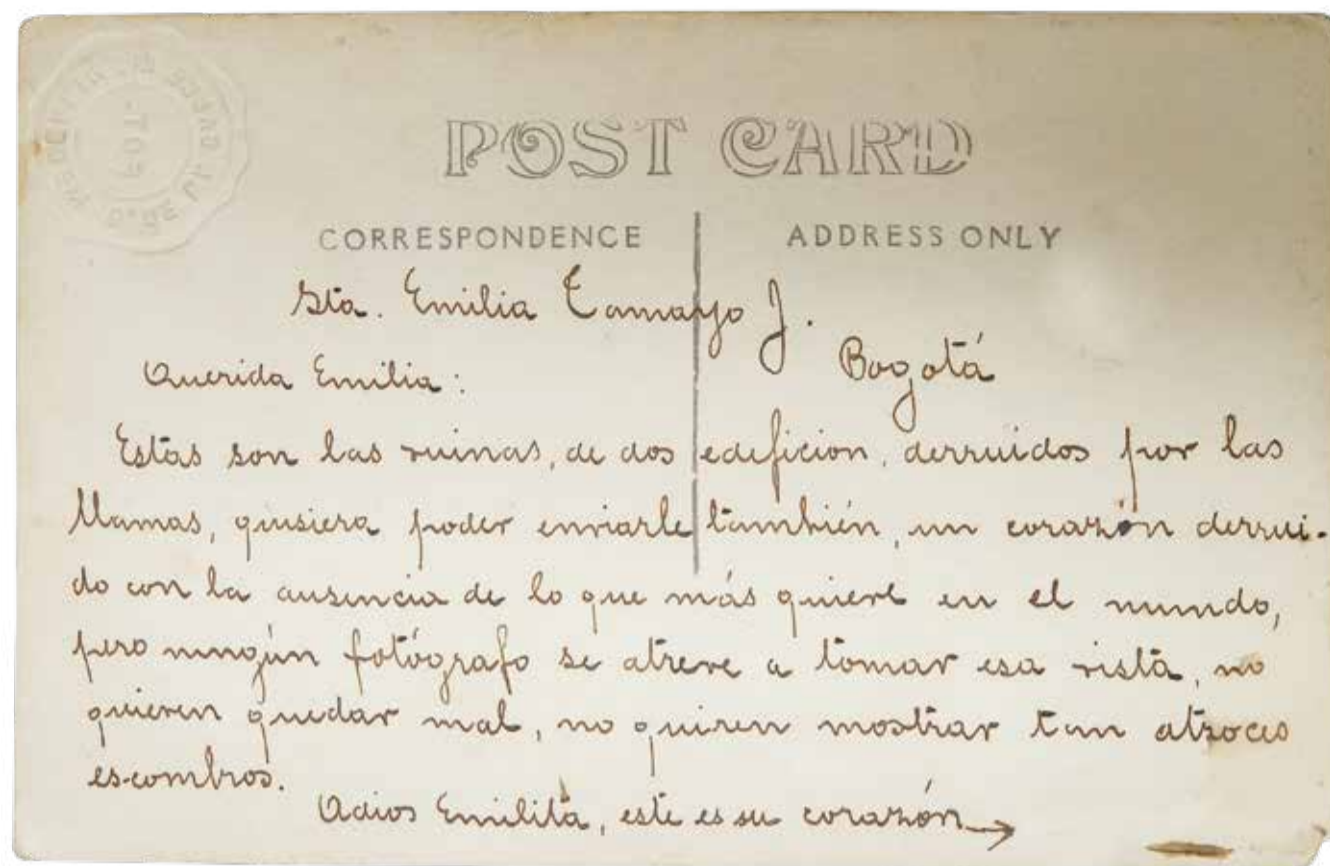 POST CARD
CORRESPONDENCE
ADDRESS ONLY
Sta. Emilia Tamayo J.
Bogotá
Querida Emilia:
Estas son las ruinas, de dos edeficion, derruidos por las
llamas, quisiera poder enviarle también, un corazón derrui-
do con la ausencia de lo que más quiere en el mundo,
pero ningún fotógrafo se atreve a tomar esa vista, no
quieren quedar mal, no quiren mostrar tan atroces
escombros.
Adios Emilita, este es su corazón →